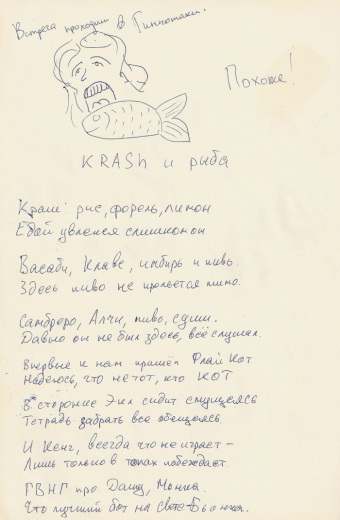 Встреча проходит в Гиннотаки.
Похоже!
KRASh и рыба
Краш: рис, форель, лимон
Едой увлекся слишком он
Васаби, Клавс, имбирь и пиво.
Здесь пиво не прольется мимо.
Самбреро, Алчи, пиво, суши.
Давно он не был здесь, всё слушал.
Впервые к нам пришел Флай Кот
Надеюсь, что не тот, кто КОТ
В сторонке Экл сидит смущеясь
Тетрадь забрать все обещаясь
И Кенг, всегда что не играет –
Лишь только в топах побеждает.
ГВНГ про Дашу, Моника.
Что лучший бот на свете